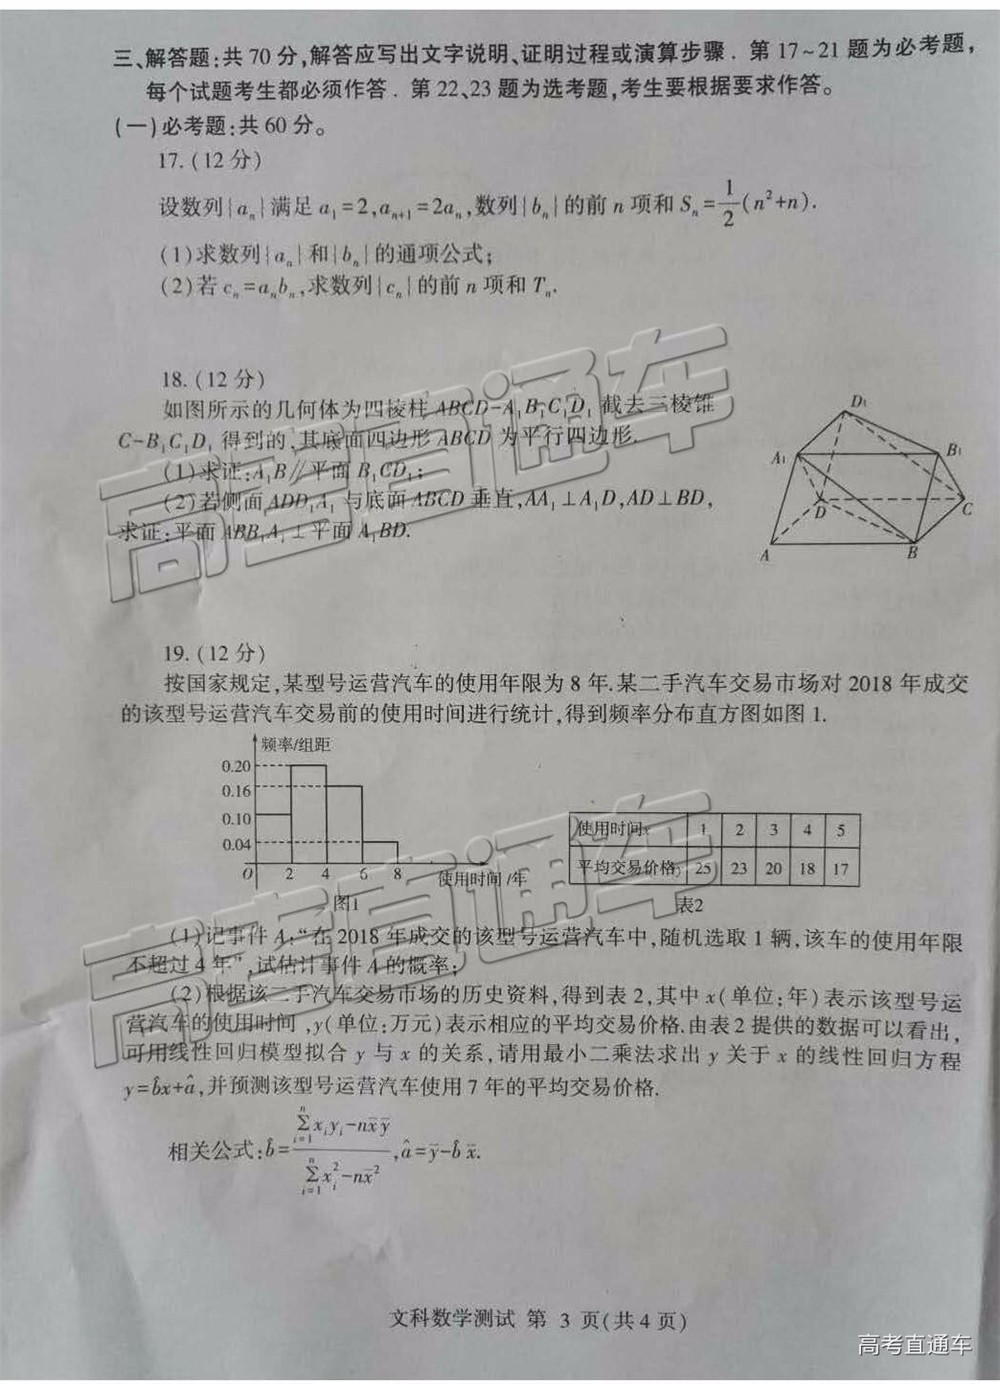 三、解答题:共70分,解答应写出文字说明、证明过程或演算步骤．第17~21题为必考题，
每个试题考生都必须作答．第22、23题为选考题,考生要根据要求作答。
(一)必考题:共60分。
17.(12分)
设数列{aₙ}满足a₁=2,aₙ₊₁=2aₙ,数列{bₙ}的前n项和Sₙ=1/2(n²+n).
(1)求数列{aₙ}和{bₙ}的通项公式;
(2)若cₙ=aₙbₙ,求数列{cₙ}的前n项和Tₙ.
18.(12分)
如图所示的几何体为四棱柱ABCD-A₁B₁C₁D₁截去三棱锥
C-B₁C₁D₁得到的,其底面四边形ABCD为平行四边形.
(1)求证:A₁B∥平面B₁CD₁;
(2)若侧面ADD₁A₁与底面ABCD垂直,AA₁⊥A₁D,AD⊥BD,
求证:平面ABB₁A₁⊥平面A₁BD.
D₁
A₁
B₁
D
C
A
B
19.(12分)
按国家规定,某型号运营汽车的使用年限为8年.某二手汽车交易市场对2018年成交
的该型号运营汽车交易前的使用时间进行统计,得到频率分布直方图如图1.
频率/组距
0.20
0.16
0.10
0.04
O 2 4 6 8 使用时间/年
图1
使用时间x 1 2 3 4 5
平均交易价格y 25 23 20 18 17
表2
(1)记事件A:“在2018年成交的该型号运营汽车中,随机选取1辆,该车的使用年限
不超过4年”,试估计事件A的概率;
(2)根据该二手汽车交易市场的历史资料,得到表2,其中x(单位:年)表示该型号运
营汽车的使用时间,y(单位:万元)表示相应的平均交易价格.由表2提供的数据可以看出,
可用线性回归模型拟合y与x的关系,请用最小二乘法求出y关于x的线性回归方程
y=b̂x+â,并预测该型号运营汽车使用7年的平均交易价格.
相关公式:b̂=(∑ᵢ₌₁ⁿxᵢyᵢ-nx̄ȳ)/(∑ᵢ₌₁ⁿxᵢ²-nx̄²),â=ȳ-b̂x̄.
文科数学测试 第3页(共4页)
高考直通车
高考直通车
高考直通车